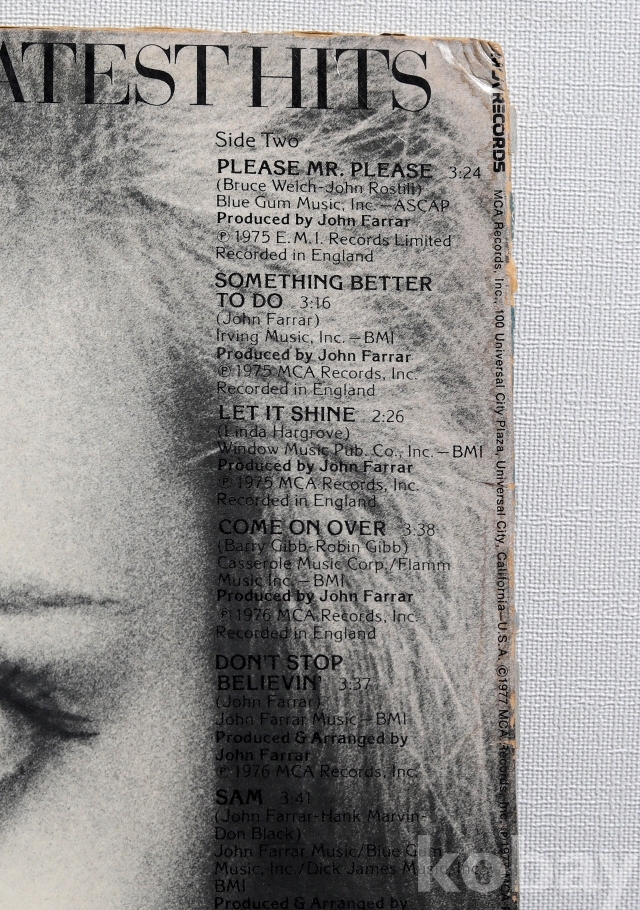 ATEST HITS
Side Two
PLEASE MR. PLEASE 3:24
(Bruce Welch-John Rostill)
Blue Gum Music, Inc.—ASCAP
Produced by John Farrar
℗ 1975 E.M.I. Records Limited
Recorded in England
SOMETHING BETTER
TO DO 3:16
(John Farrar)
Irving Music, Inc.—BMI
Produced by John Farrar
℗ 1975 MCA Records, Inc.
Recorded in England
LET IT SHINE 2:26
(Linda Hargrove)
Window Music Pub. Co., Inc.—BMI
Produced by John Farrar
℗ 1975 MCA Records, Inc.
Recorded in England
COME ON OVER 3:38
(Barry Gibb-Robin Gibb)
Casserole Music Corp./Flamm
Music Inc.—BMI
Produced by John Farrar
℗ 1976 MCA Records, Inc.
Recorded in England
DON'T STOP
BELIEVIN' 3:37
(John Farrar)
John Farrar Music—BMI
Produced & Arranged by
John Farrar
℗ 1976 MCA Records, Inc.
SAM 3:41
(John Farrar-Hank Marvin-
Don Black)
John Farrar Music/Blue Gum
Music, Inc./Dick James Music, Inc.
BMI
Produced & Arranged by
RECORDS MCA Records, Inc., 100 Universal City Plaza, Universal City, California—U.S.A. ©1977 MCA Records, Inc.